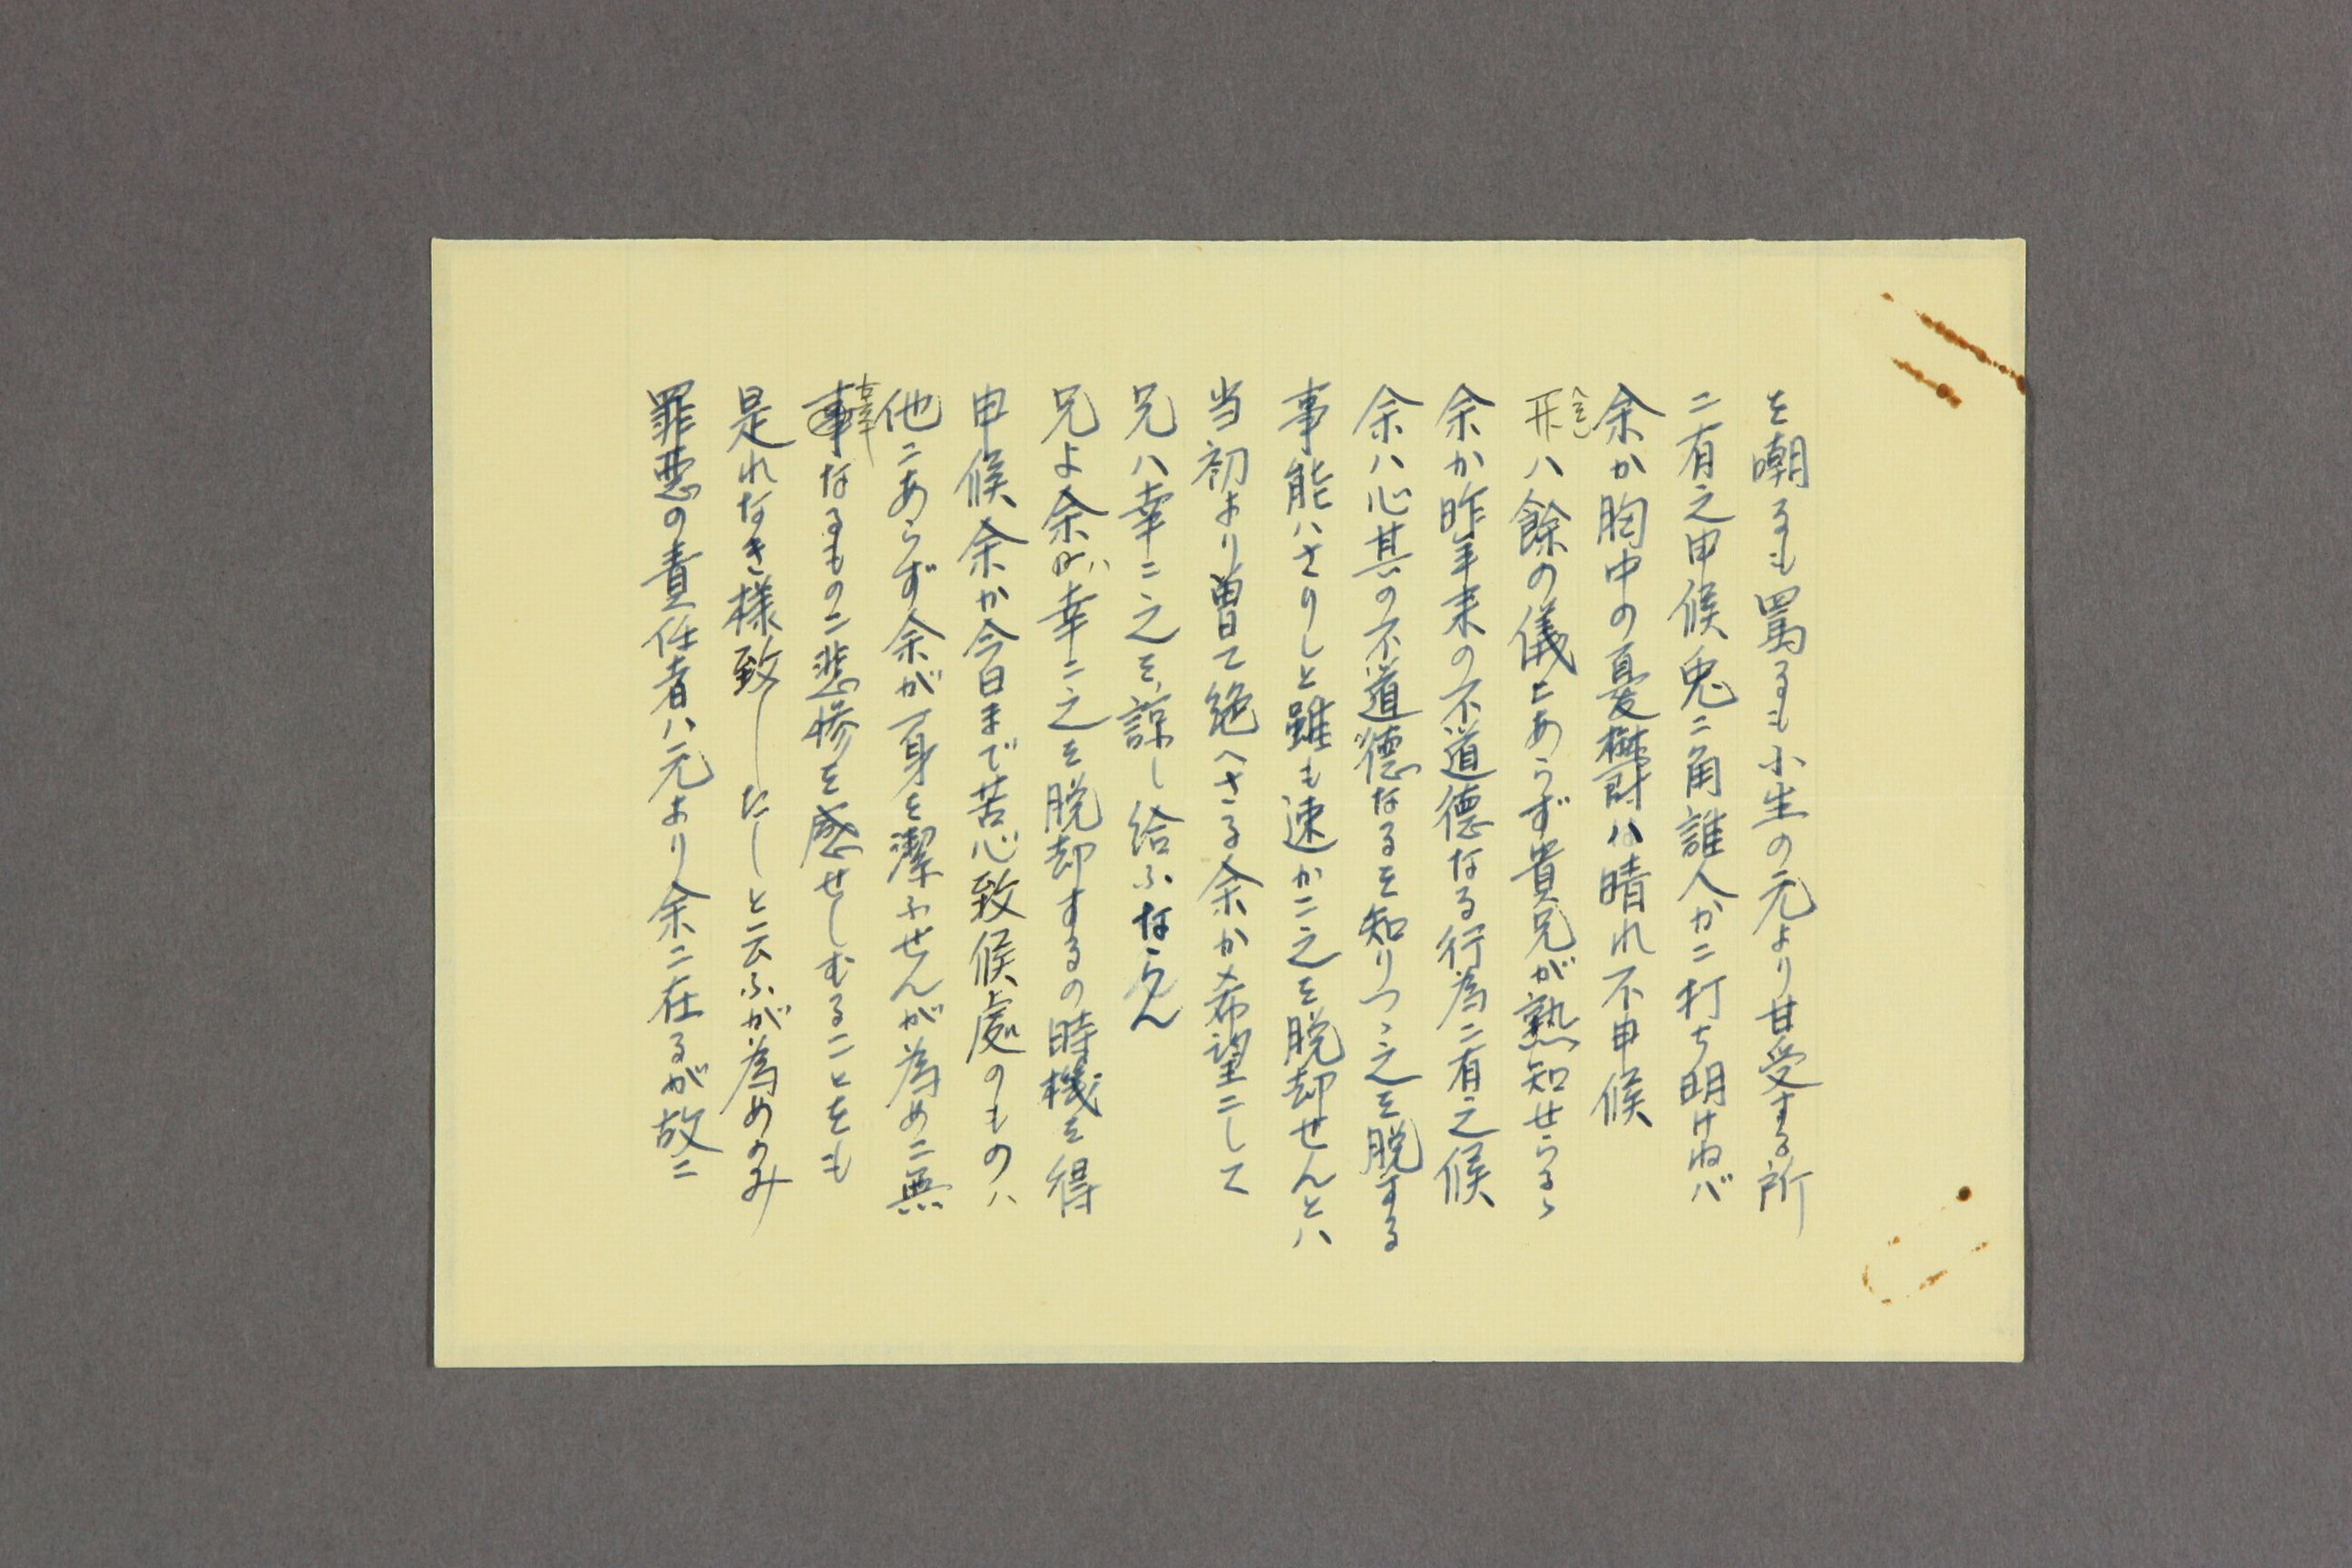 を嘲るも罵るも小生の元より甘受する所
ニ有之申候兎ニ角誰人かニ打ち明けねバ
余か胸中の憂欝ハ晴れ不申候
ハ餘の儀ニあらず貴兄が熟知せらるゝ
余か昨年来の不道徳なる行為ニ有之候
余ハ心其の不道徳なるを知りつゝ之を脱する
事能ハさりしと雖も速かニ之を脱却せんとハ
当初より曽て絶へさる余か希望ニして
兄ハ幸ニ之を諒し給ふならん
兄よ余が幸ニ之を脱却するの時機を得
申候余か今日まで苦心致候處のものハ
他ニあらず余が一身を潔ふせんが為めニ無
辜なるものニ悲惨を感せしむることをも
是れなき様致したしと云ふが為めのみ
罪悪の責任者ハ元より余ニ在るが故ニ